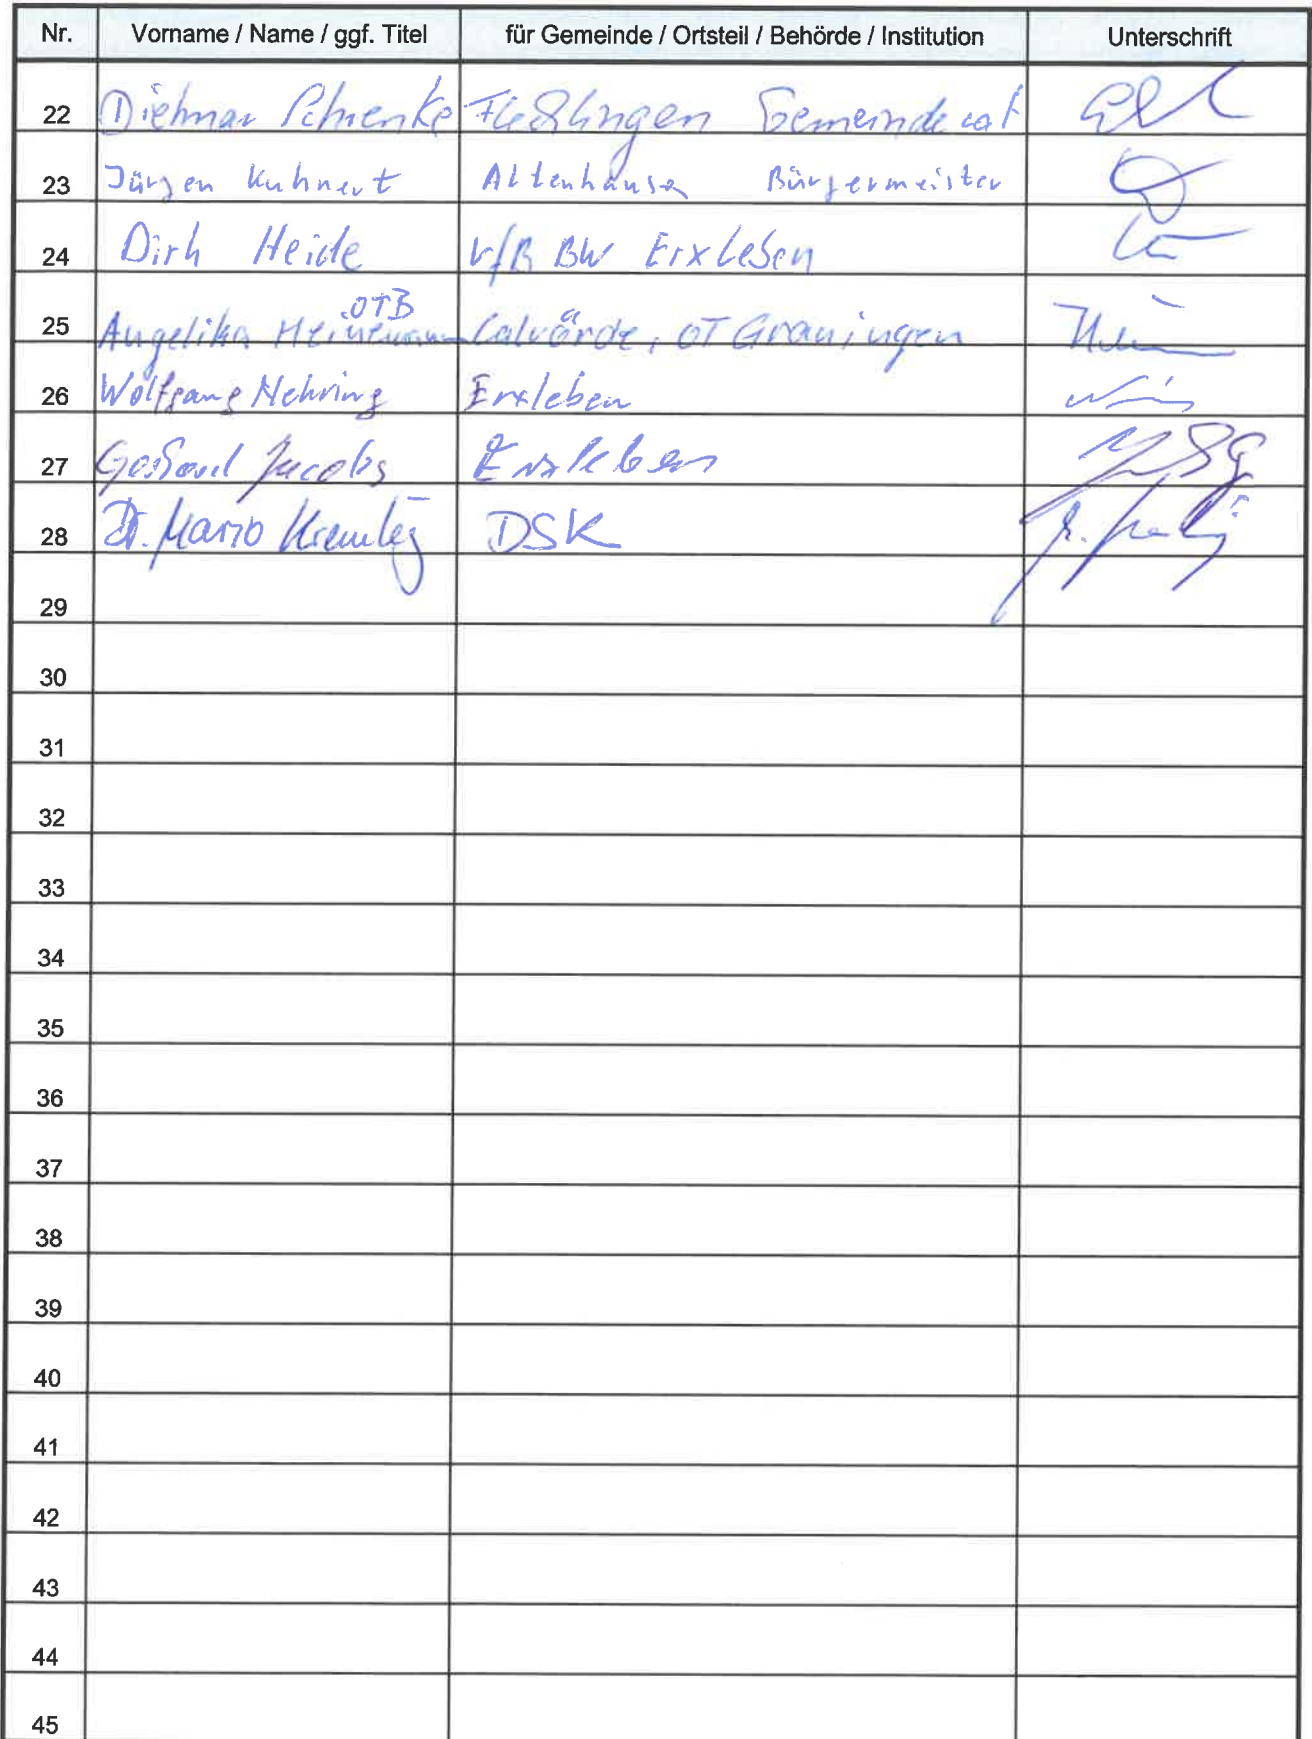 Nr. Vorname / Name / ggf. Titel für Gemeinde / Ortsteil / Behörde / Institution Unterschrift
22 Dietmar Schenke Flechtingen Gemeinderat
23 Jürgen Kuhnert Altenhausen Bürgermeister
24 Dirk Heide VfB BW Erxleben
OTB
25 Angelika Heinemann Calvörde, OT Grauingen
26 Wolfgang Nehring Erxleben
27 Gerhard Jacobs Erxleben
28 Dr. Mario DSK
29
30
31
32
33
34
35
36
37
38
39
40
41
42
43
44
45